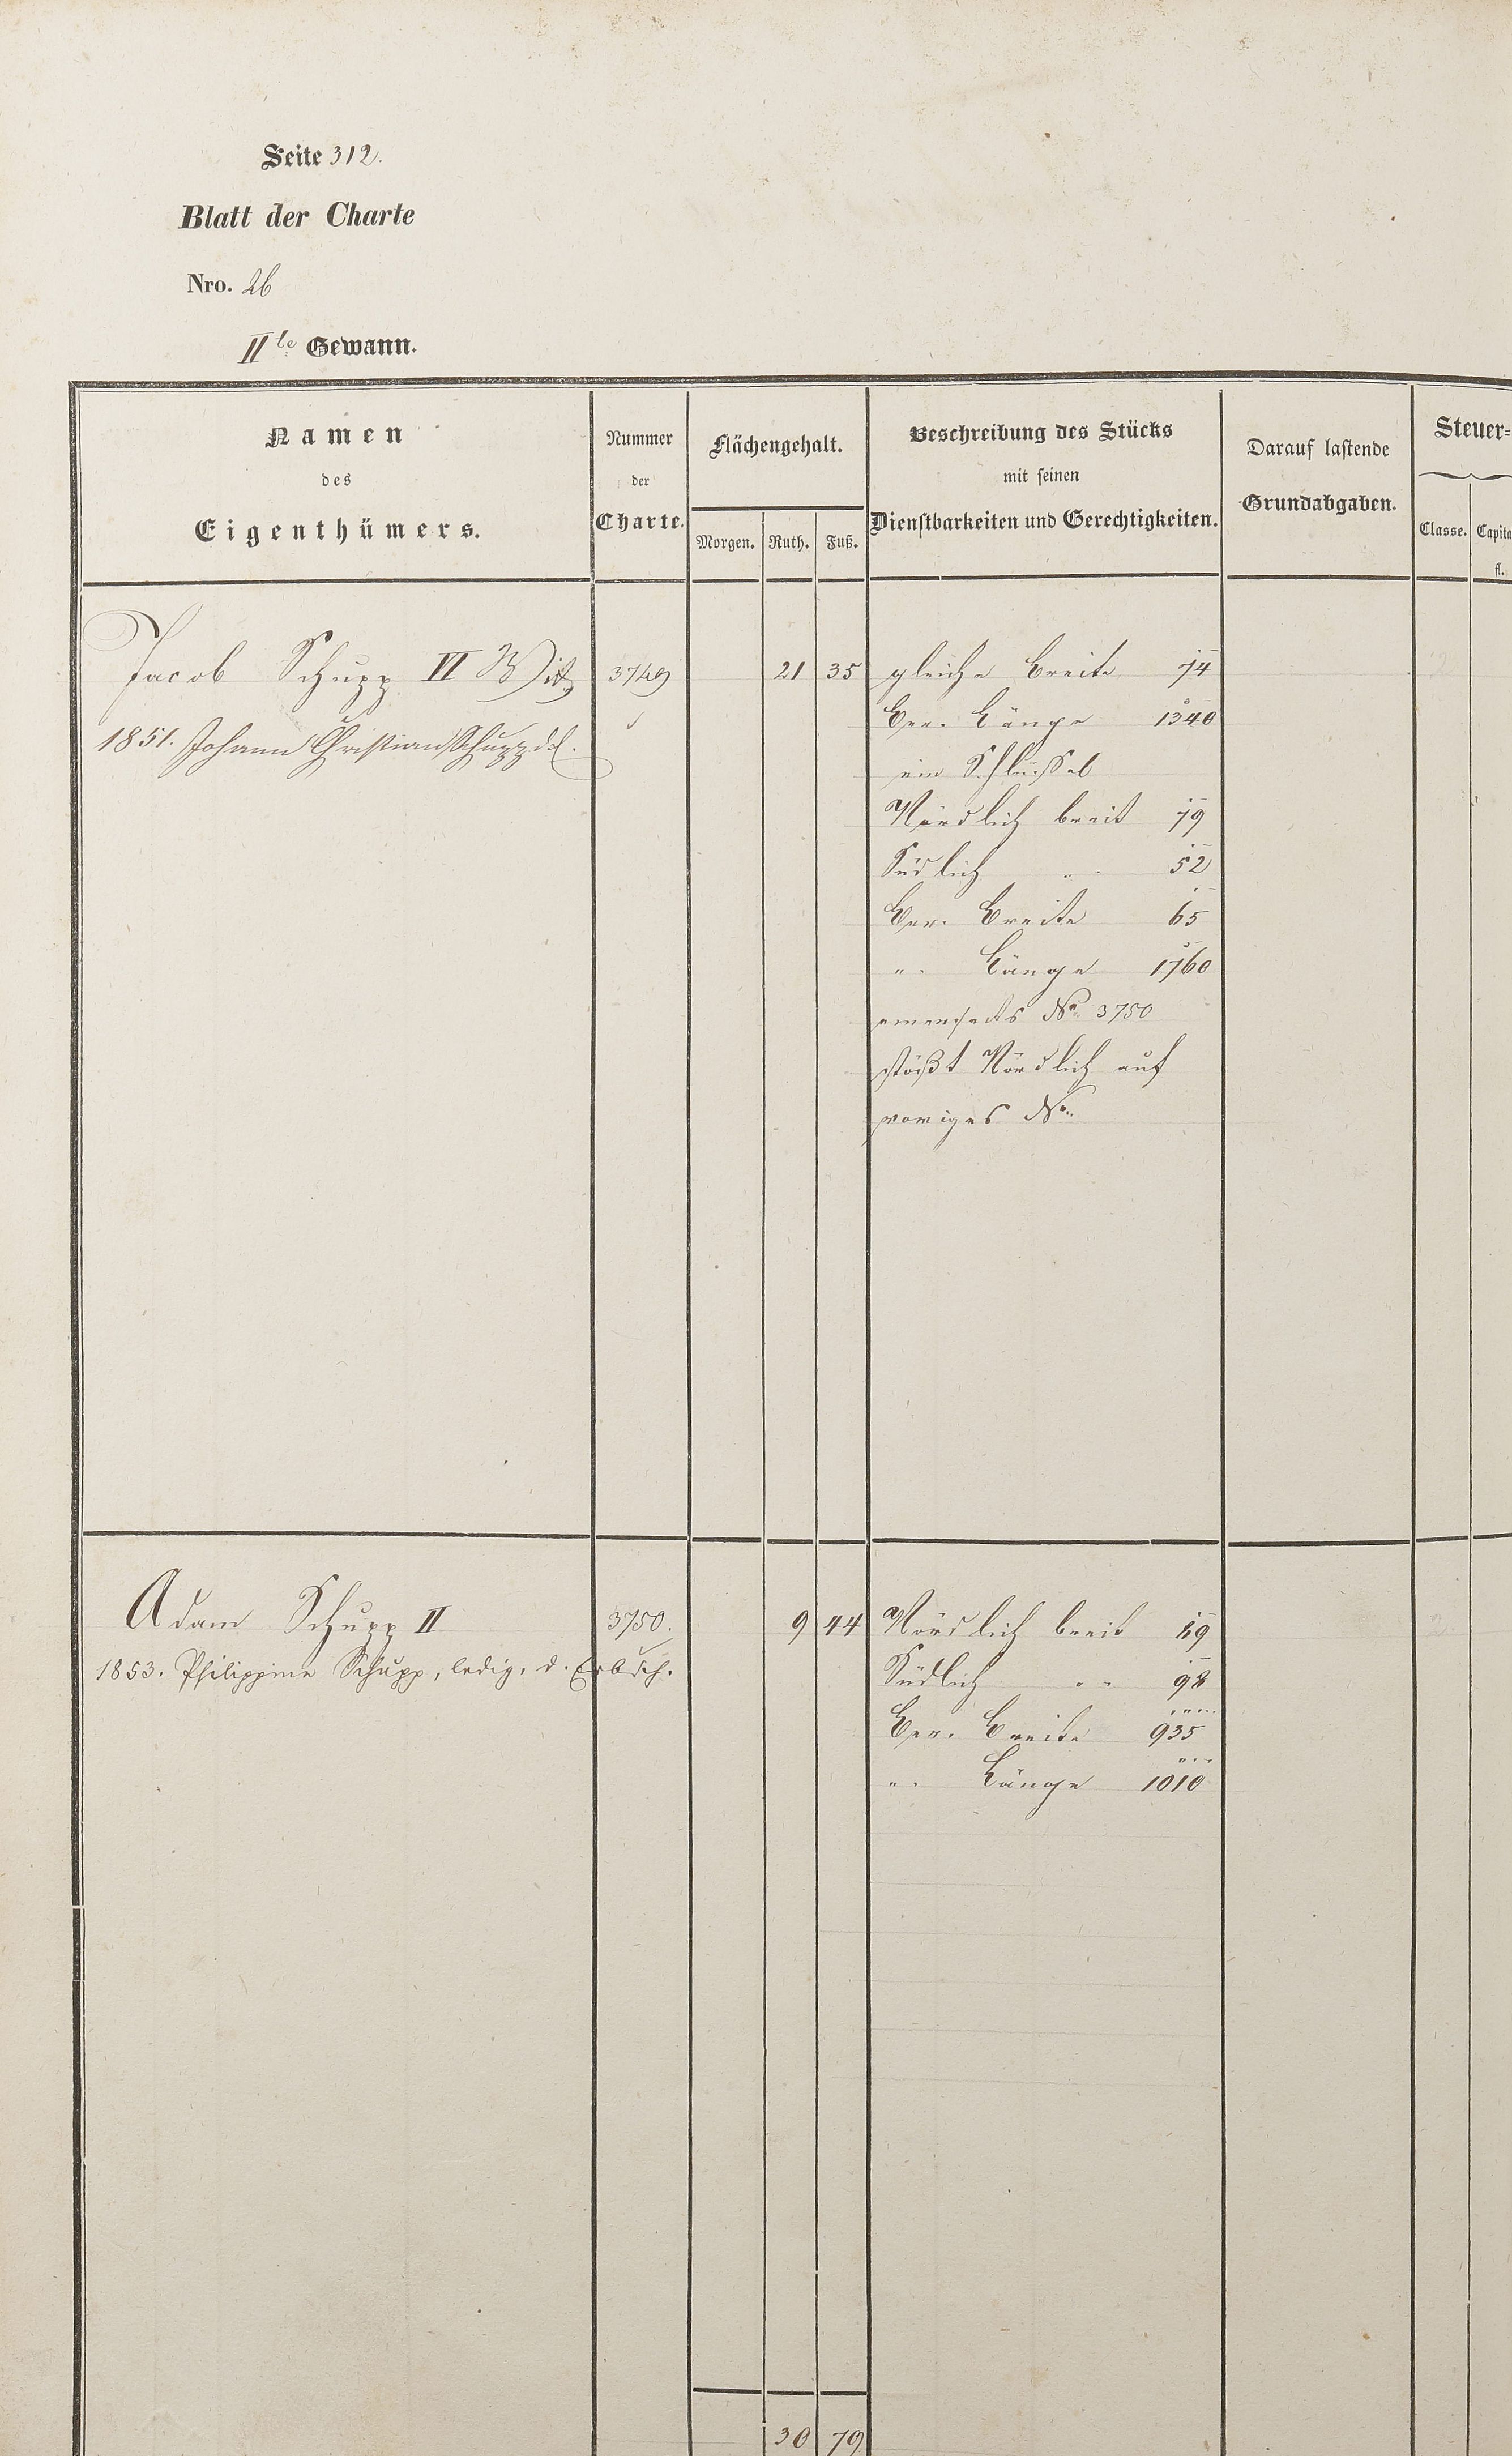 Seite 312.
Blatt der Charte
Nro. 26
IIte Gewann.
Namen
des
Eigenthümers.
Nummer
der
Charte.
Flächengehalt.
Morgen. Ruth. Fuß.
Beschreibung des Stücks
mit seinen
Dienstbarkeiten und Gerechtigkeiten.
Darauf lastende
Grundabgaben.
Steuer=
Classe. Capita
fl.
Jacob Schupp VI Wit 3749 21 35 gleiche Breite 74
1851. Johann Christian Schupp
Ber. Länge 1340
ein Schlüssel
Nördlich breit 79
Südlich " 52
Ber. Breite 65
" Länge 1760
einerseits No 3750
stößt Nördlich auf
voriges No
Adam Schupp II 3750. 9 44 Nördlich breit 89
1853. Philippine Schupp, ledig, d. Erbsch.
Südlich " 98
Ber. Breite 935
" Länge 1010
30 79